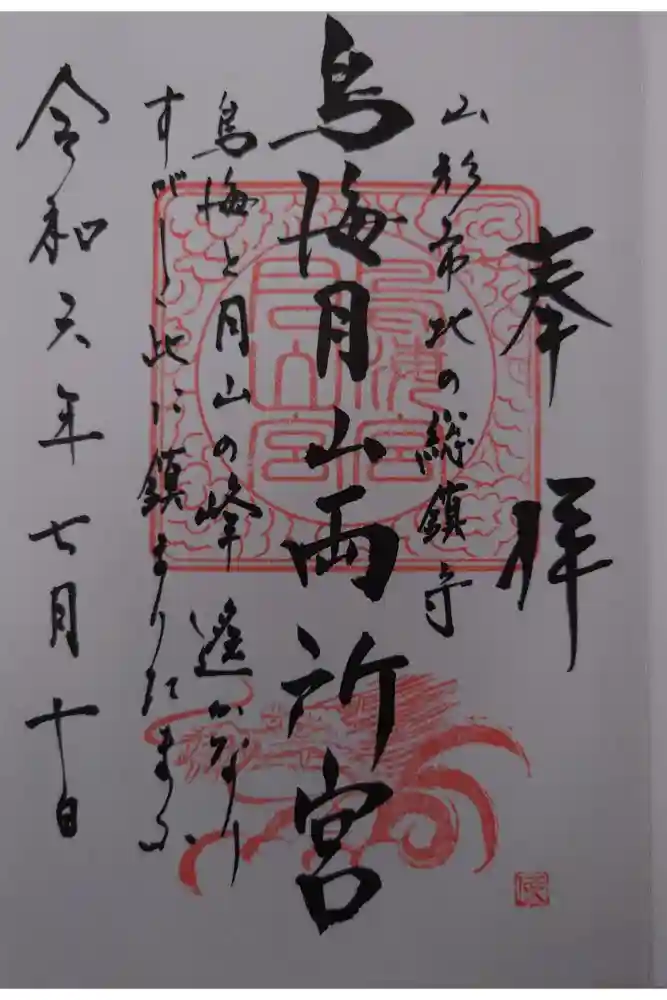 奉拝
山形市北の総鎮守
鳥海月山両所宮
鳥海宮
月山宮
鳥海と月山の峰 遙かなり
すがしく此に鎮まりたまふ
令和六年七月十日